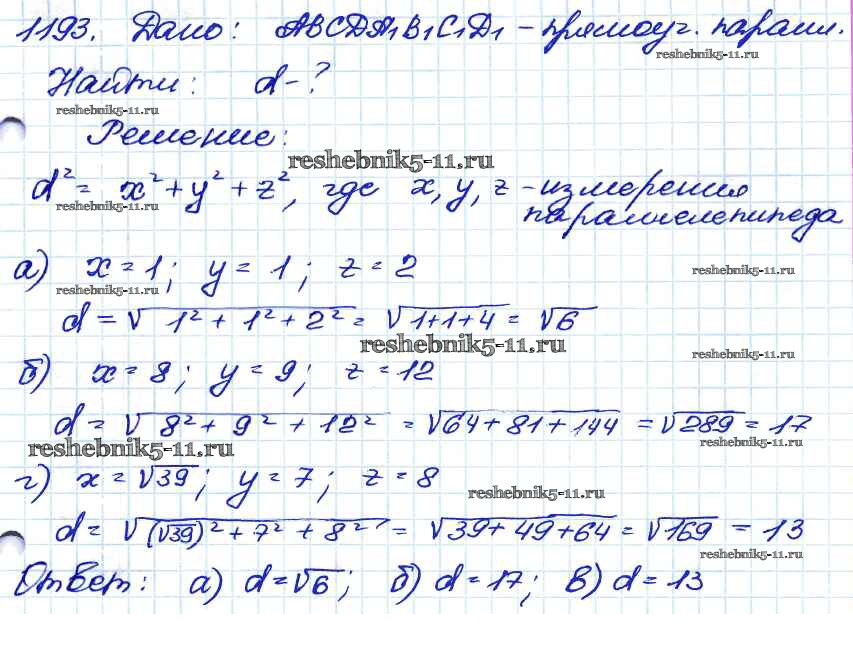 1193. Дано: ABCDA₁B₁C₁D₁ - прямоуг. паралл.
reshebnik5-11.ru
Найти: d-?
reshebnik5-11.ru
Решение:
reshebnik5-11.ru
d² = x² + y² + z², где x, y, z - измерения
reshebnik5-11.ru
параллелепипеда
а) x = 1; y = 1; z = 2
reshebnik5-11.ru
reshebnik5-11.ru
d = √(1² + 1² + 2²) = √(1+1+4) = √6
reshebnik5-11.ru
reshebnik5-11.ru
б) x = 8; y = 9; z = 12
d = √(8² + 9² + 12²) = √(64 + 81 + 144) = √289 = 17
reshebnik5-11.ru
reshebnik5-11.ru
г) x = √39; y = 7; z = 8
reshebnik5-11.ru
d = √((√39)² + 7² + 8²) = √(39 + 49 + 64) = √169 = 13
reshebnik5-11.ru
Ответ: а) d = √6; б) d = 17; в) d = 13